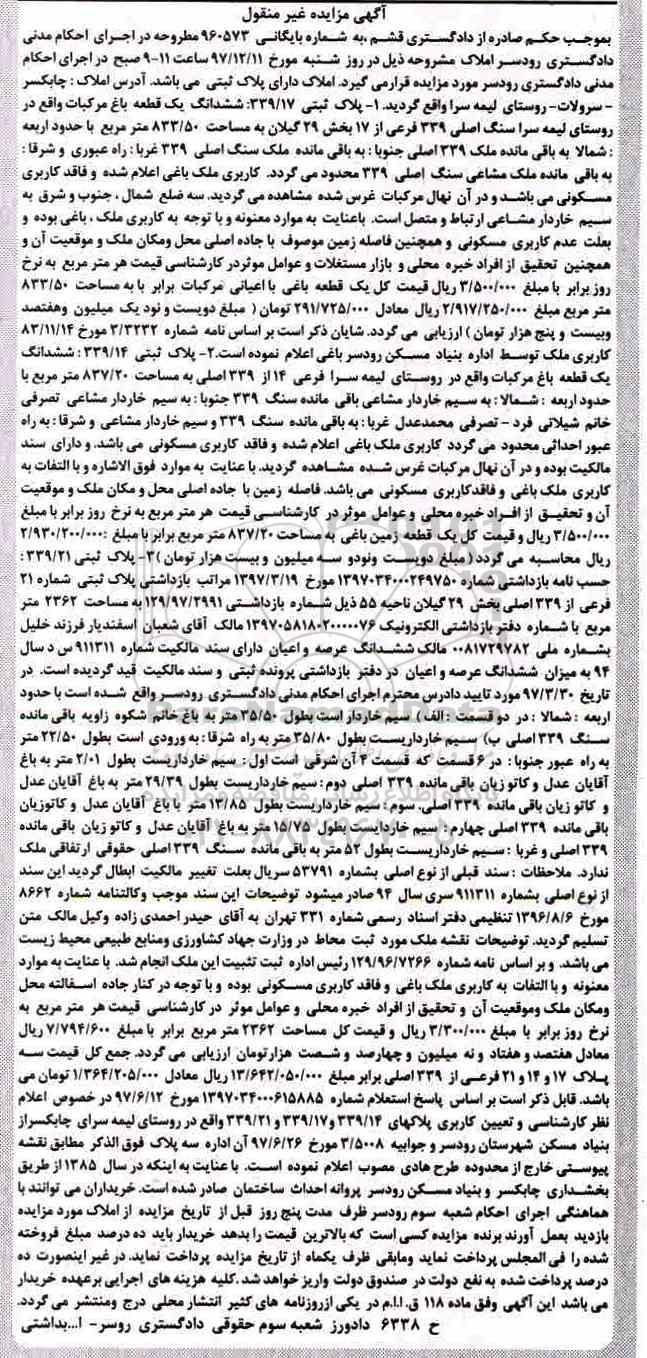 آگهی مزایده غیر منقول
بموجب حکم صادره از دادگستری قشم ،به شماره بایگانی ۹۶۰۵۷۳ مطروحه در اجرای احکام مدنی
دادگستری رودسر املاک مشروحه ذیل در روز شنبه مورخ ۹۷/۱۲/۱۱ ساعت ۱۱-۹ صبح در اجرای احکام
مدنی دادگستری رودسر مورد مزایده قرارمی گیرد. املاک دارای پلاک ثبتی می باشد. آدرس املاک : چابکسر
- سرولات- روستای لیمه سرا واقع گردید. ۱- پلاک ثبتی ۳۳۹/۱۷: ششدانگ یک قطعه باغ مرکبات واقع در
روستای لیمه سرا سنگ اصلی ۳۳۹ فرعی از ۱۷ بخش ۲۹ گیلان به مساحت ۸۳۳/۵۰ متر مربع با حدود اربعه
: شمالا به باقی مانده ملک ۳۳۹ اصلی جنوبا : به باقی مانده ملک سنگ اصلی ۳۳۹ غربا : راه عبوری و شرقا :
به باقی مانده ملک مشاعی سنگ اصلی ۳۳۹ محدود می گردد. کاربری ملک باغی اعلام شده و فاقد کاربری
مسکونی می باشد و در آن نهال مرکبات غرس شده مشاهده می گردید. سه ضلع شمال ، جنوب و شرق به
سیم خاردار مشاعی ارتباط و متصل است. باعنایت به موارد معنونه و با توجه به کاربری ملک ، باغی بوده و
بعلت عدم کاربری مسکونی و همچنین فاصله زمین موصوف با جاده اصلی محل ومکان ملک و موقعیت آن و
همچنین تحقیق از افراد خبره محلی و بازار مستغلات و عوامل موثردر کارشناسی قیمت هر متر مربع به نرخ
روز برابر با مبلغ ۳/۵۰۰/۰۰۰ ریال قیمت کل یک قطعه باغی با اعیانی مرکبات برابر با به مساحت ۸۳۳/۵۰
متر مربع مبلغ ۲/۹۱۷/۲۵۰/۰۰۰ ریال معادل ۲۹۱/۷۲۵/۰۰۰ تومان ( مبلغ دویست و نود یک میلیون وهفتصد
وبیست و پنج هزار تومان ) ارزیابی می گردد. شایان ذکر است بر اساس نامه شماره ۳/۳۲۳۲ مورخ ۸۳/۱۱/۱۴
کاربری ملک توسط اداره بنیاد مسکن رودسر باغی اعلام نموده است.۲- پلاک ثبتی ۳۳۹/۱۴ : ششدانگ
یک قطعه باغ مرکبات واقع در روستای لیمه سرا فرعی ۱۴ از ۳۳۹ اصلی به مساحت ۸۳۷/۲۰ متر مربع با
حدود اربعه : شمالا : به سیم خاردار مشاعی باقی مانده سنگ ۳۳۹ جنوبا : به سیم خاردار مشاعی تصرفی
خانم شیلاتی فرد - تصرفی محمدعدل غربا : به باقی مانده سنگ ۳۳۹ و سیم خاردار مشاعی و شرقا : به راه
عبور احداثی محدود می گردد کاربری ملک باغی اعلام شده و فاقد کاربری مسکونی می باشد. و دارای سند
مالکیت بوده و در آن نهال مرکبات غرس شده مشاهده گردید. با عنایت به موارد فوق الاشاره و با التفات به
کاربری ملک باغی و فاقدکاربری مسکونی می باشد. فاصله زمین با جاده اصلی محل و مکان ملک و موقعیت
آن و تحقیق از افراد خبره محلی و عوامل موثر در کارشناسی قیمت هر متر مربع به نرخ روز برابر با مبلغ
۳/۵۰۰/۰۰۰ ریال و قیمت کل یک قطعه زمین باغی به مساحت ۸۳۷/۲۰ متر مربع برابر با مبلغ :۲/۹۳۰/۲۰۰/۰۰۰
ریال محاسبه می گردد( مبلغ دویست ونودو سه میلیون و بیست هزار تومان )۳- پلاک ثبتی ۳۳۹/۲۱ :
حسب نامه بازداشتی شماره ۱۳۹۷۰۳۴۰۰۰۲۴۹۷۵۰ مورخ ۱۳۹۷/۳/۱۹ مراتب بازداشتی پلاک ثبتی شماره ۲۱
فرعی از ۳۳۹ اصلی بخش ۲۹ گیلان ناحیه ۵۵ ذیل شماره بازداشتی ۱۲۹/۹۷/۲۹۹۱ به مساحت ۲۳۶۲ متر
مربع با شماره دفتر بازداشتی الکترونیک ۱۳۹۷۰۵۸۱۸۰۲۰۰۰۰۷۶ مالک آقای شعبان اسفندیار فرزند خلیل
بشماره ملی ۰۰۸۱۷۲۹۷۸۲ مالک ششدانگ عرصه و اعیان دارای سند مالکیت شماره ۹۱۱۳۱۱ س د سال
۹۴ به میزان ششدانگ عرصه و اعیان در دفتر بازداشتی پرونده ثبتی و سند مالکیت قید گردیده است. در
تاریخ ۹۷/۳/۳۰ مورد تایید دادرس محترم اجرای احکام مدنی دادگستری رودسر واقع شده است با حدود
اربعه : شمالا : در دو قسمت : الف ) سیم خاردار است بطول ۳۵/۵۰ متر به باغ خانم شکوه زاویه باقی مانده
سنگ ۳۳۹ اصلی ب) سیم خارداریست بطول ۳۵/۸۰ متر به راه شرقا : به ورودی است بطول ۲۲/۵۰ متر
به راه عبور جنوبا : در ۶ قسمت که قسمت ۴ آن شرقی است اول : سیم خارداریست بطول ۲/۰۱ متر به باغ
آقایان عدل و کاتو زیان باقی مانده ۳۳۹ اصلی دوم : سیم خارداریست بطول ۲۹/۳۹ متر به باغ آقایان عدل
و کاتو زیان باقی مانده ۳۳۹ اصلی. سوم : سیم خارداریست بطول ۱۳/۸۵ متر با باغ آقایان عدل و کاتوزیان
باقی مانده ۳۳۹ اصلی چهارم : سیم خاردایست بطول ۱۵/۷۵ متر به باغ آقایان عدل و کاتو زیان باقی مانده
۳۳۹ اصلی و غربا : سیم خارداریست بطول ۵۲ متر به باقی مانده سنگ ۳۳۹ اصلی حقوقی ارتفاقی ملک
ندارد. ملاحظات : سند قبلی از نوع اصلی بشماره ۵۳۷۹۱ سریال بعلت تغییر مالکیت ابطال گردید این سند
از نوع اصلی بشماره ۹۱۱۳۱۱ سری سال ۹۴ صادر میشود توضیحات این سند موجب وکالتنامه شماره ۸۶۶۲
مورخ ۱۳۹۶/۸/۶ تنظیمی دفتر اسناد رسمی شماره ۳۳۱ تهران به آقای حیدر احمدی زاده وکیل مالک متن
تسلیم گردید. توضیحات نقشه ملک مورد ثبت محاط در وزارت جهاد کشاورزی ومنابع طبیعی محیط زیست
می باشد. و بر اساس نامه شماره ۱۲۹/۹۶/۷۲۶۶ رئیس اداره ثبت تثبیت این ملک انجام شد. با عنایت به موارد
معنونه و با التفات به کاربری ملک باغی و فاقد کاربری مسکونی بوده و با توجه در کنار جاده اسفالته محل
ومکان ملک وموقعیت آن و تحقیق از افراد خبره محلی و عوامل موثر در کارشناسی قیمت هر متر مربع به
نرخ روز برابر با مبلغ ۳/۳۰۰/۰۰۰ ریال و قیمت کل مساحت ۲۳۶۲ متر مربع برابر با مبلغ ۷/۷۹۴/۶۰۰ ریال
معادل هفتصد و هفتاد و نه میلیون و چهارصد و شصت هزارتومان ارزیابی می گردد. جمع کل قیمت سه
پلاک ۱۷ و ۱۴ و ۲۱ فرعی از ۳۳۹ اصلی برابر مبلغ ۱۳/۶۴۲/۰۵۰/۰۰۰ ریال معادل ۱/۳۶۴/۲۰۵/۰۰۰ تومان می
باشد. قابل ذکر است بر اساس پاسخ استعلام شماره ۱۳۹۷۰۳۴۰۰۰۶۱۵۸۸۵ مورخ ۹۷/۶/۱۲ در خصوص اعلام
نظر کارشناسی و تعیین کاربری پلاکهای ۳۳۹/۱۴ و۳۳۹/۱۷ و ۳۳۹/۲۱ واقع در روستای لیمه سرای چابکسراز
بنیاد مسکن شهرستان رودسر و جوابیه ۳/۵۰۰۸ مورخ ۹۷/۶/۲۶ آن اداره سه پلاک فوق الذکر مطابق نقشه
پیوستی خارج از محدوده طرح هادی مصوب اعلام نموده است. با عنایت به اینکه در سال ۱۳۸۵ از طریق
بخشداری چابکسر و بنیاد مسکن رودسر پروانه احداث ساختمان صادر شده است. خریداران می توانند با
هماهنگی اجرای احکام شعبه سوم رودسر ظرف مدت پنج روز قبل از تاریخ مزایده از املاک مورد مزایده
بازدید بعمل آورند برنده مزایده کسی است که بالاترین قیمت را بدهد خریدار باید ده درصد مبلغ فروخته
شده را فی المجلس پرداخت نماید ومابقی ظرف یکماه از تاریخ مزایده پرداخت نماید. در غیر اینصورت ده
درصد پرداخت شده به نفع دولت در صندوق دولت واریز خواهد شد .کلیه هزینه های اجرایی برعهده خریدار
می باشد این آگهی وفق ماده ۱۱۸ ق.ا.ا.م در یکی ازروزنامه های کثیر انتشار محلی درج ومنتشر می گردد.
ح ۶۳۳۸ دادورز شعبه سوم حقوقی دادگستری روسر- ا...بداشتی